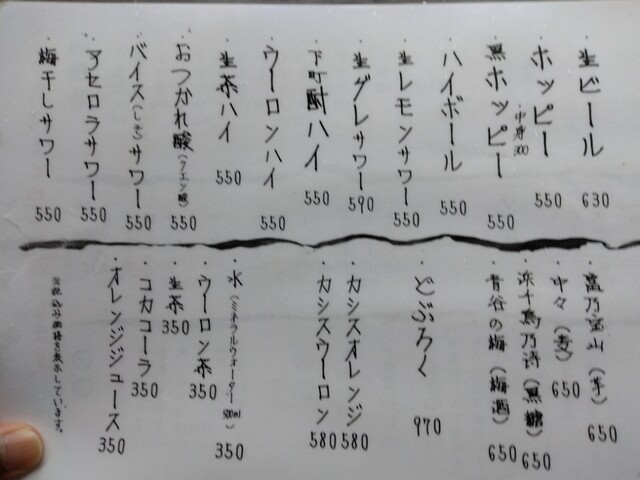 ・生ビール 630
・ホッピー 550
・黒ホッピー 550
・中身300
・ハイボール 550
・生レモンサワー 550
・生グレサワー 590
・下町酎ハイ 550
・ウーロンハイ 550
・生茶ハイ 550
・おつかれ酸(クエン酸) 550
・バイス(しそ)サワー 550
・アセロラサワー 550
・梅干しサワー 550
・萬乃宝山(芋) 650
・中々(麦) 650
・浜千鳥乃詩(黒糖) 650
・青谷の梅(梅酒) 650
・どぶろく 970
・カシスオレンジ 580
・カシスウーロン 580
・水(ミネラルウォーター500ml) 350
・ウーロン茶 350
・生茶 350
・コカコーラ 350
・オレンジジュース 350
※税込み価格を表示しています。